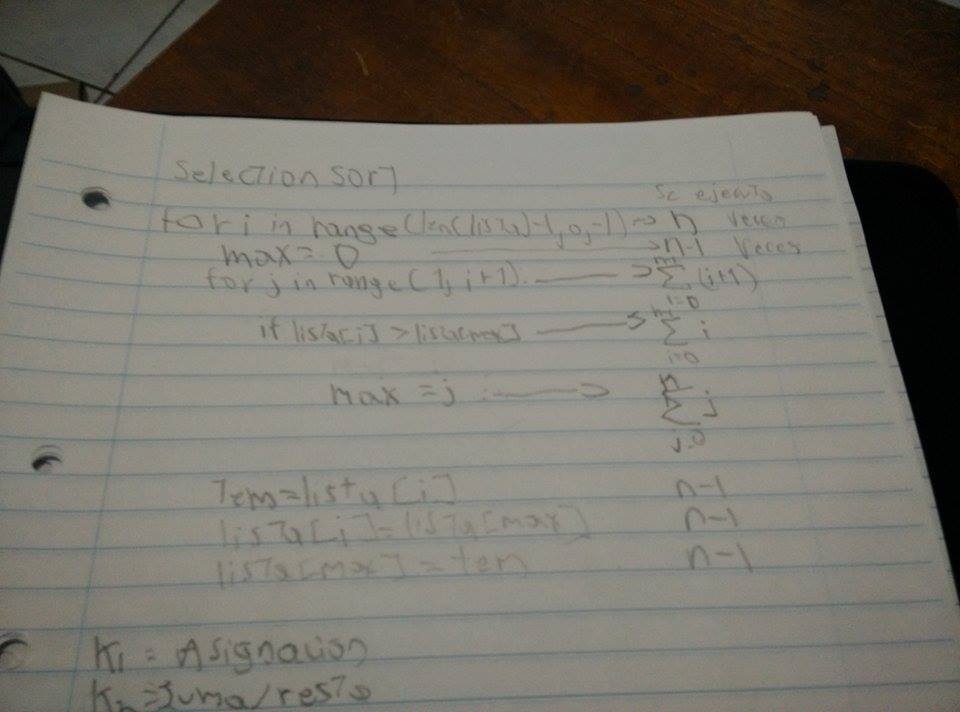 Selection sort
se ejecuta
for i in range(len(lista)-1,0,-1) → n veces
max=0 → n-1 veces
for j in range(1,i+1) → n-1 ∑ i=0 (i+1)
if lista[j]>lista[max] → n-1 ∑ i=0 i
max=j → ∑ j=0 j
Tem=lista[i] n-1
lista[i]=lista[max] n-1
lista[max]=tem n-1
K1 = Asignacion
K2=Suma/resta